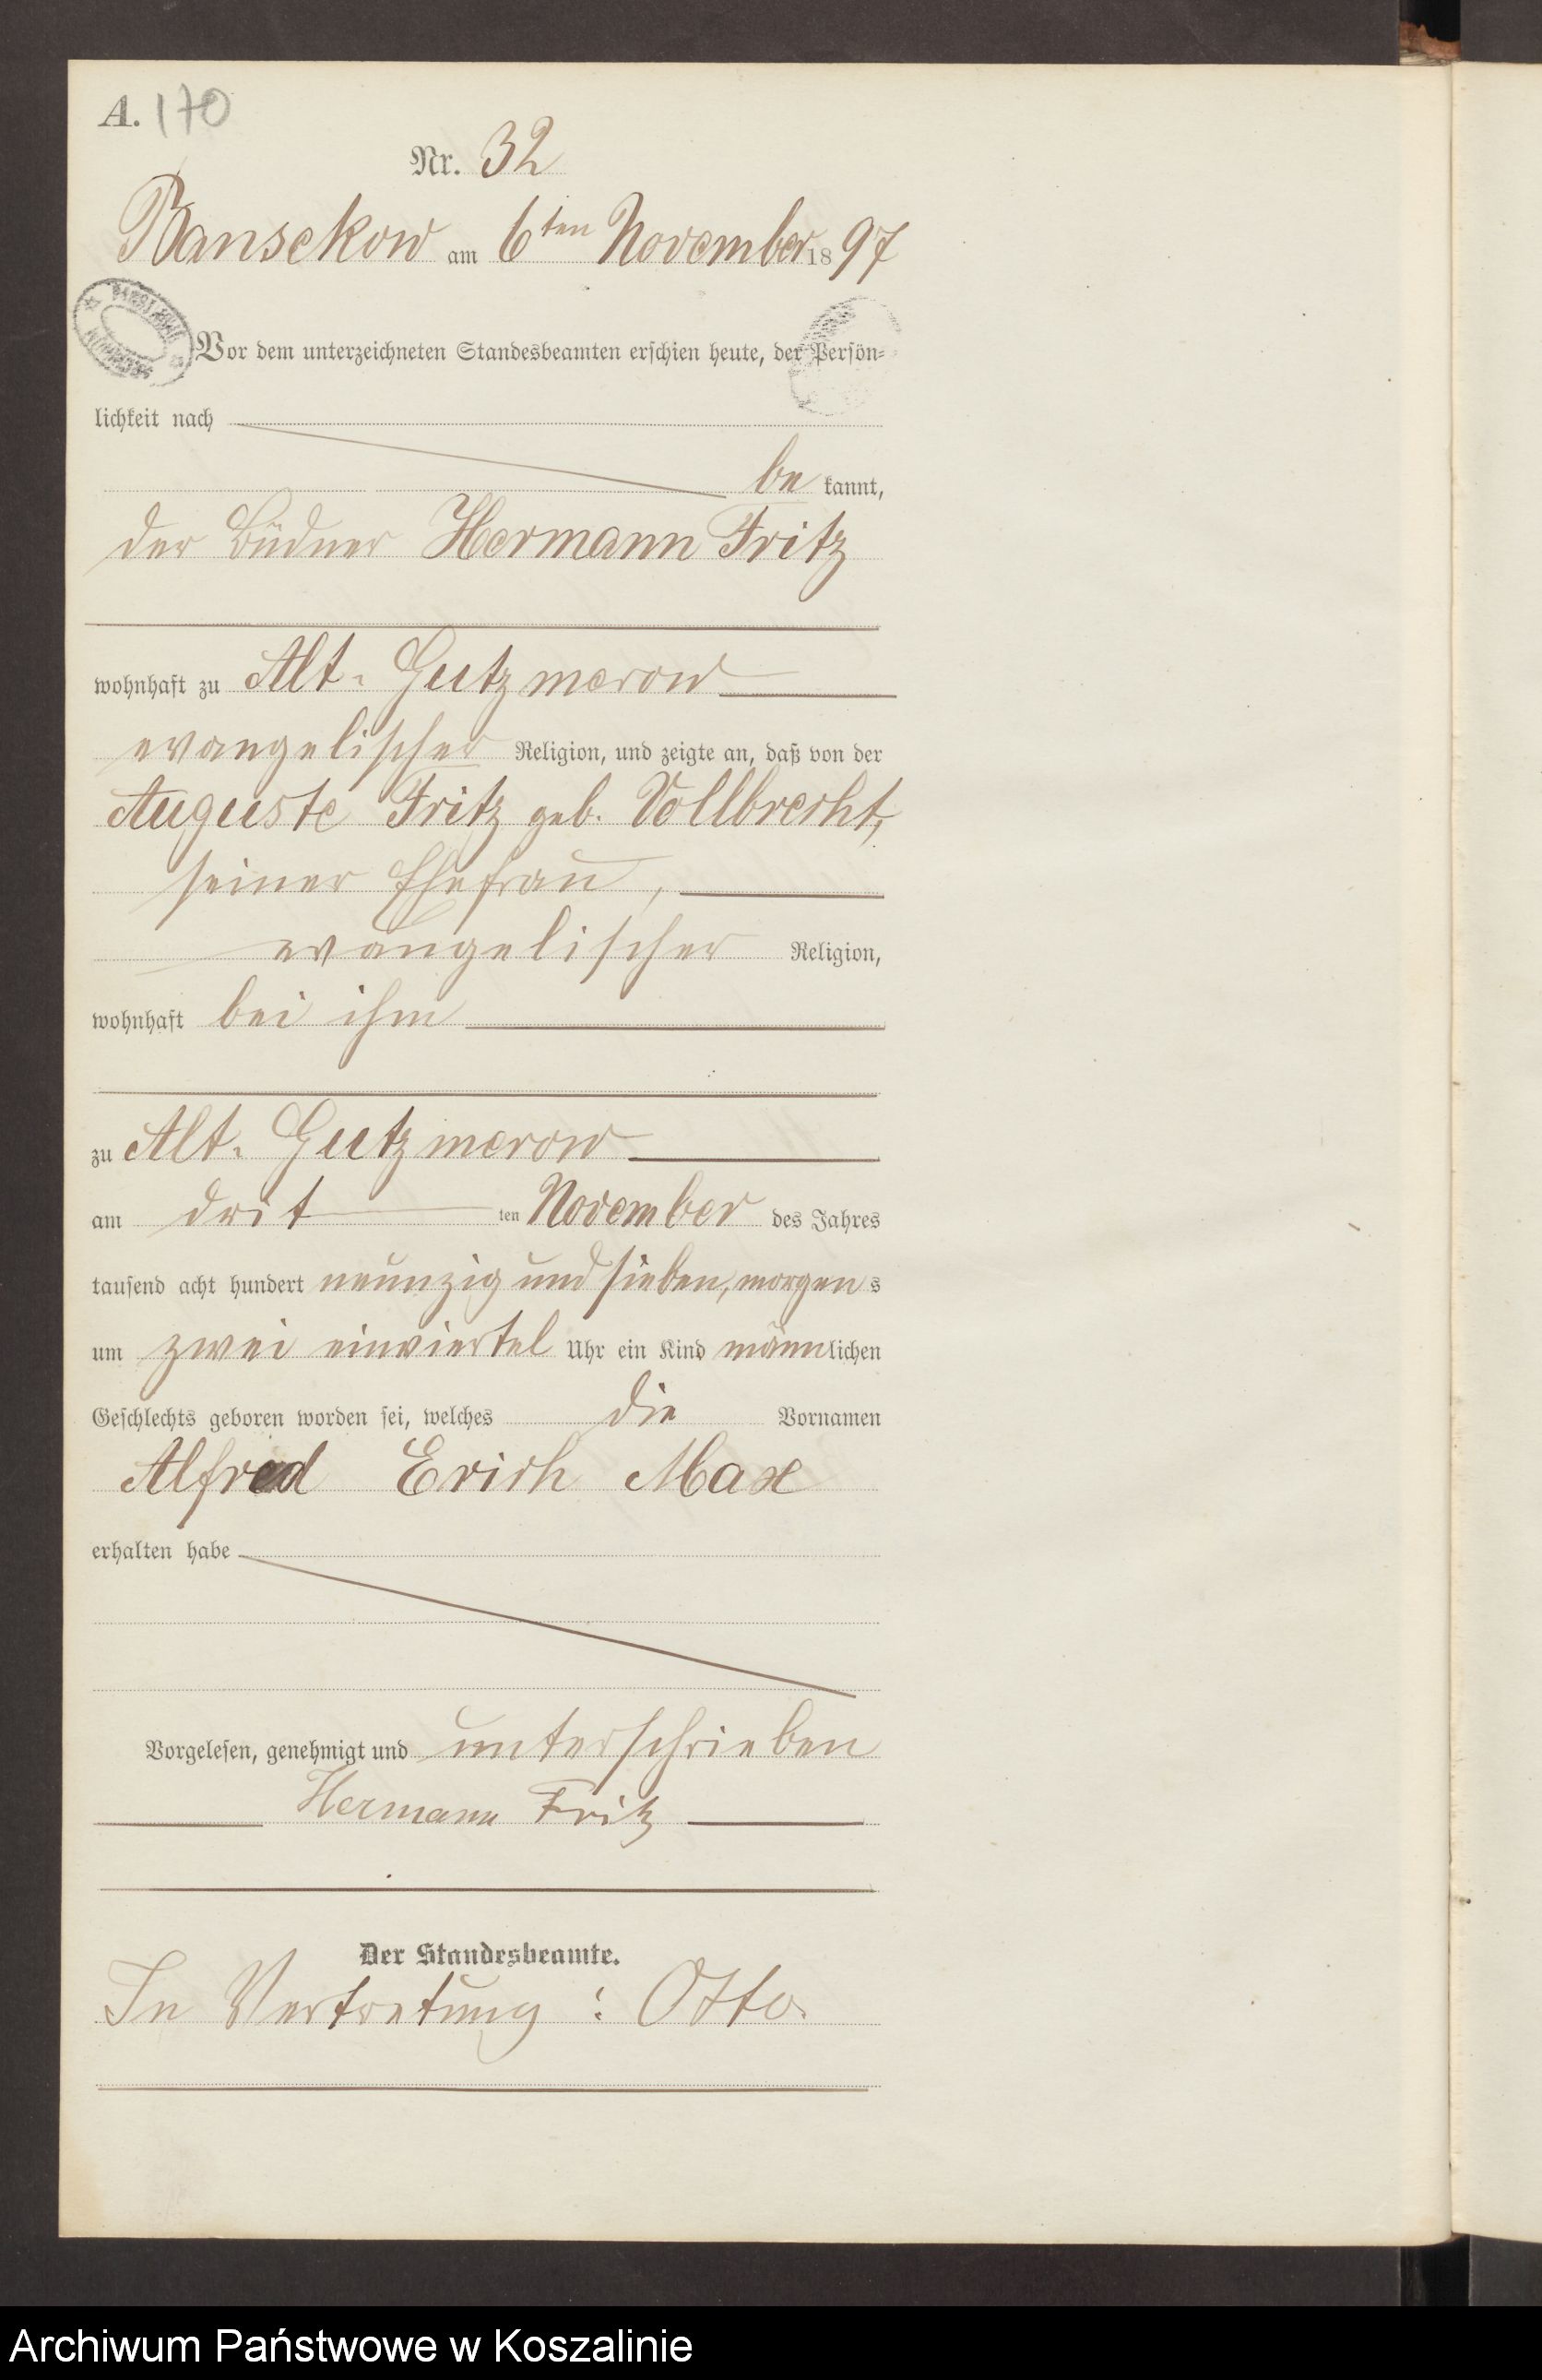 A. 170
Nr. 32
Bansekow am 6ten November 1897
Vor dem unterzeichneten Standesbeamten erschien heute, der Persön-
lichkeit nach
be kannt,
der Büdner Hermann Fritz
wohnhaft zu Alt-Gutzmerow
evangelischer Religion, und zeigte an, daß von der
Auguste Fritz geb. Vollbrecht,
seiner Ehefrau,
evangelischer Religion,
wohnhaft bei ihm
zu Alt-Gutzmerow
am dritten November des Jahres
tausend acht hundert neunzig und sieben, morgens
um zwei einviertel Uhr ein Kind männlichen
Geschlechts geboren worden sei, welches die Vornamen
Alfred Erich Max
erhalten habe
Vorgelesen, genehmigt und unterschrieben
Hermann Fritz
Der Standesbeamte.
In Vertretung: Otto.
Archiwum Państwowe w Koszalinie